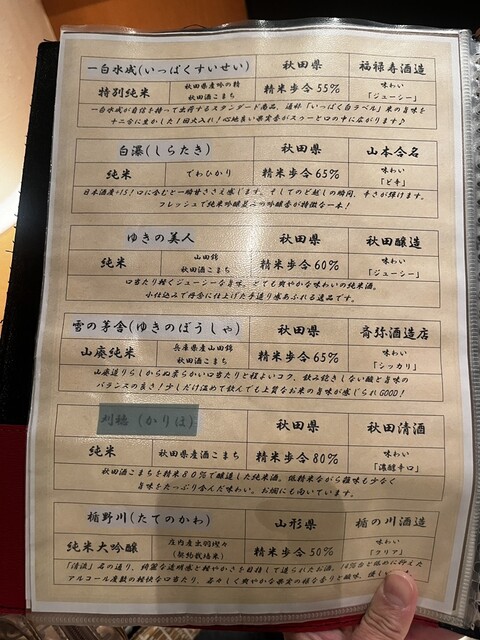 一白水成(いっぱくすいせい) 秋田県 福禄寿酒造
特別純米 秋田県産吟の精 秋田酒こまち 精米歩合55% 味わい「ジューシー」
一白水成が自信を持って出荷するスタンダード商品。通称「いっぱく白ラベル」米の旨味を
十二分に生かした1回火入れ!心地良い果実香がスゥーと口の中に広がります♪
白瀑(しらたき) 秋田県 山本合名
純米 でわひかり 精米歩合65% 味わい「ど辛」
日本酒度+15!口に含むと一瞬甘ささえ感じます。そしてのど越しの瞬間、辛さが弾けます。
フレッシュで純米吟醸並みの吟醸香が特徴な一本!
ゆきの美人 秋田県 秋田醸造
純米 山田錦 秋田酒こまち 精米歩合60% 味わい「ジューシー」
口当たり軽くジューシーな旨味。とても爽やかな味わいの純米酒。
小仕込みで丹念に仕上げた手造り味あふれる逸品です。
雪の茅舎(ゆきのぼうしゃ) 秋田県 齋弥酒造店
山廃純米 兵庫県産山田錦 秋田酒こまち 精米歩合65% 味わい「シッカリ」
山廃造りらしからぬ柔らかい口当たりと程よいコク、飲み飽きしない酸と旨味の
バランスの良さ!少しだけ温めて飲んでも上質なお米の旨味が感じられGOOD!
刈穂(かりほ) 秋田県 秋田清酒
純米 秋田県産酒こまち 精米歩合80% 味わい「濃醇辛口」
秋田酒こまちを精米80%で醸造した純米酒。低精米ながら雑味も少なく
旨味をたっぷり含んだ味わい。お燗にも向いています。
楯野川(たてのかわ) 山形県 楯の川酒造
純米大吟醸 庄内産出羽燦々(契約栽培米) 精米歩合50% 味わい「クリア」
「清流」名の通り、綺麗な透明感と軽やかさを目指して造られたお酒。14%台と低めに抑えた
アルコール度数の軽快な口当たり、若々しく爽やかな果実の様な香りと酸味、